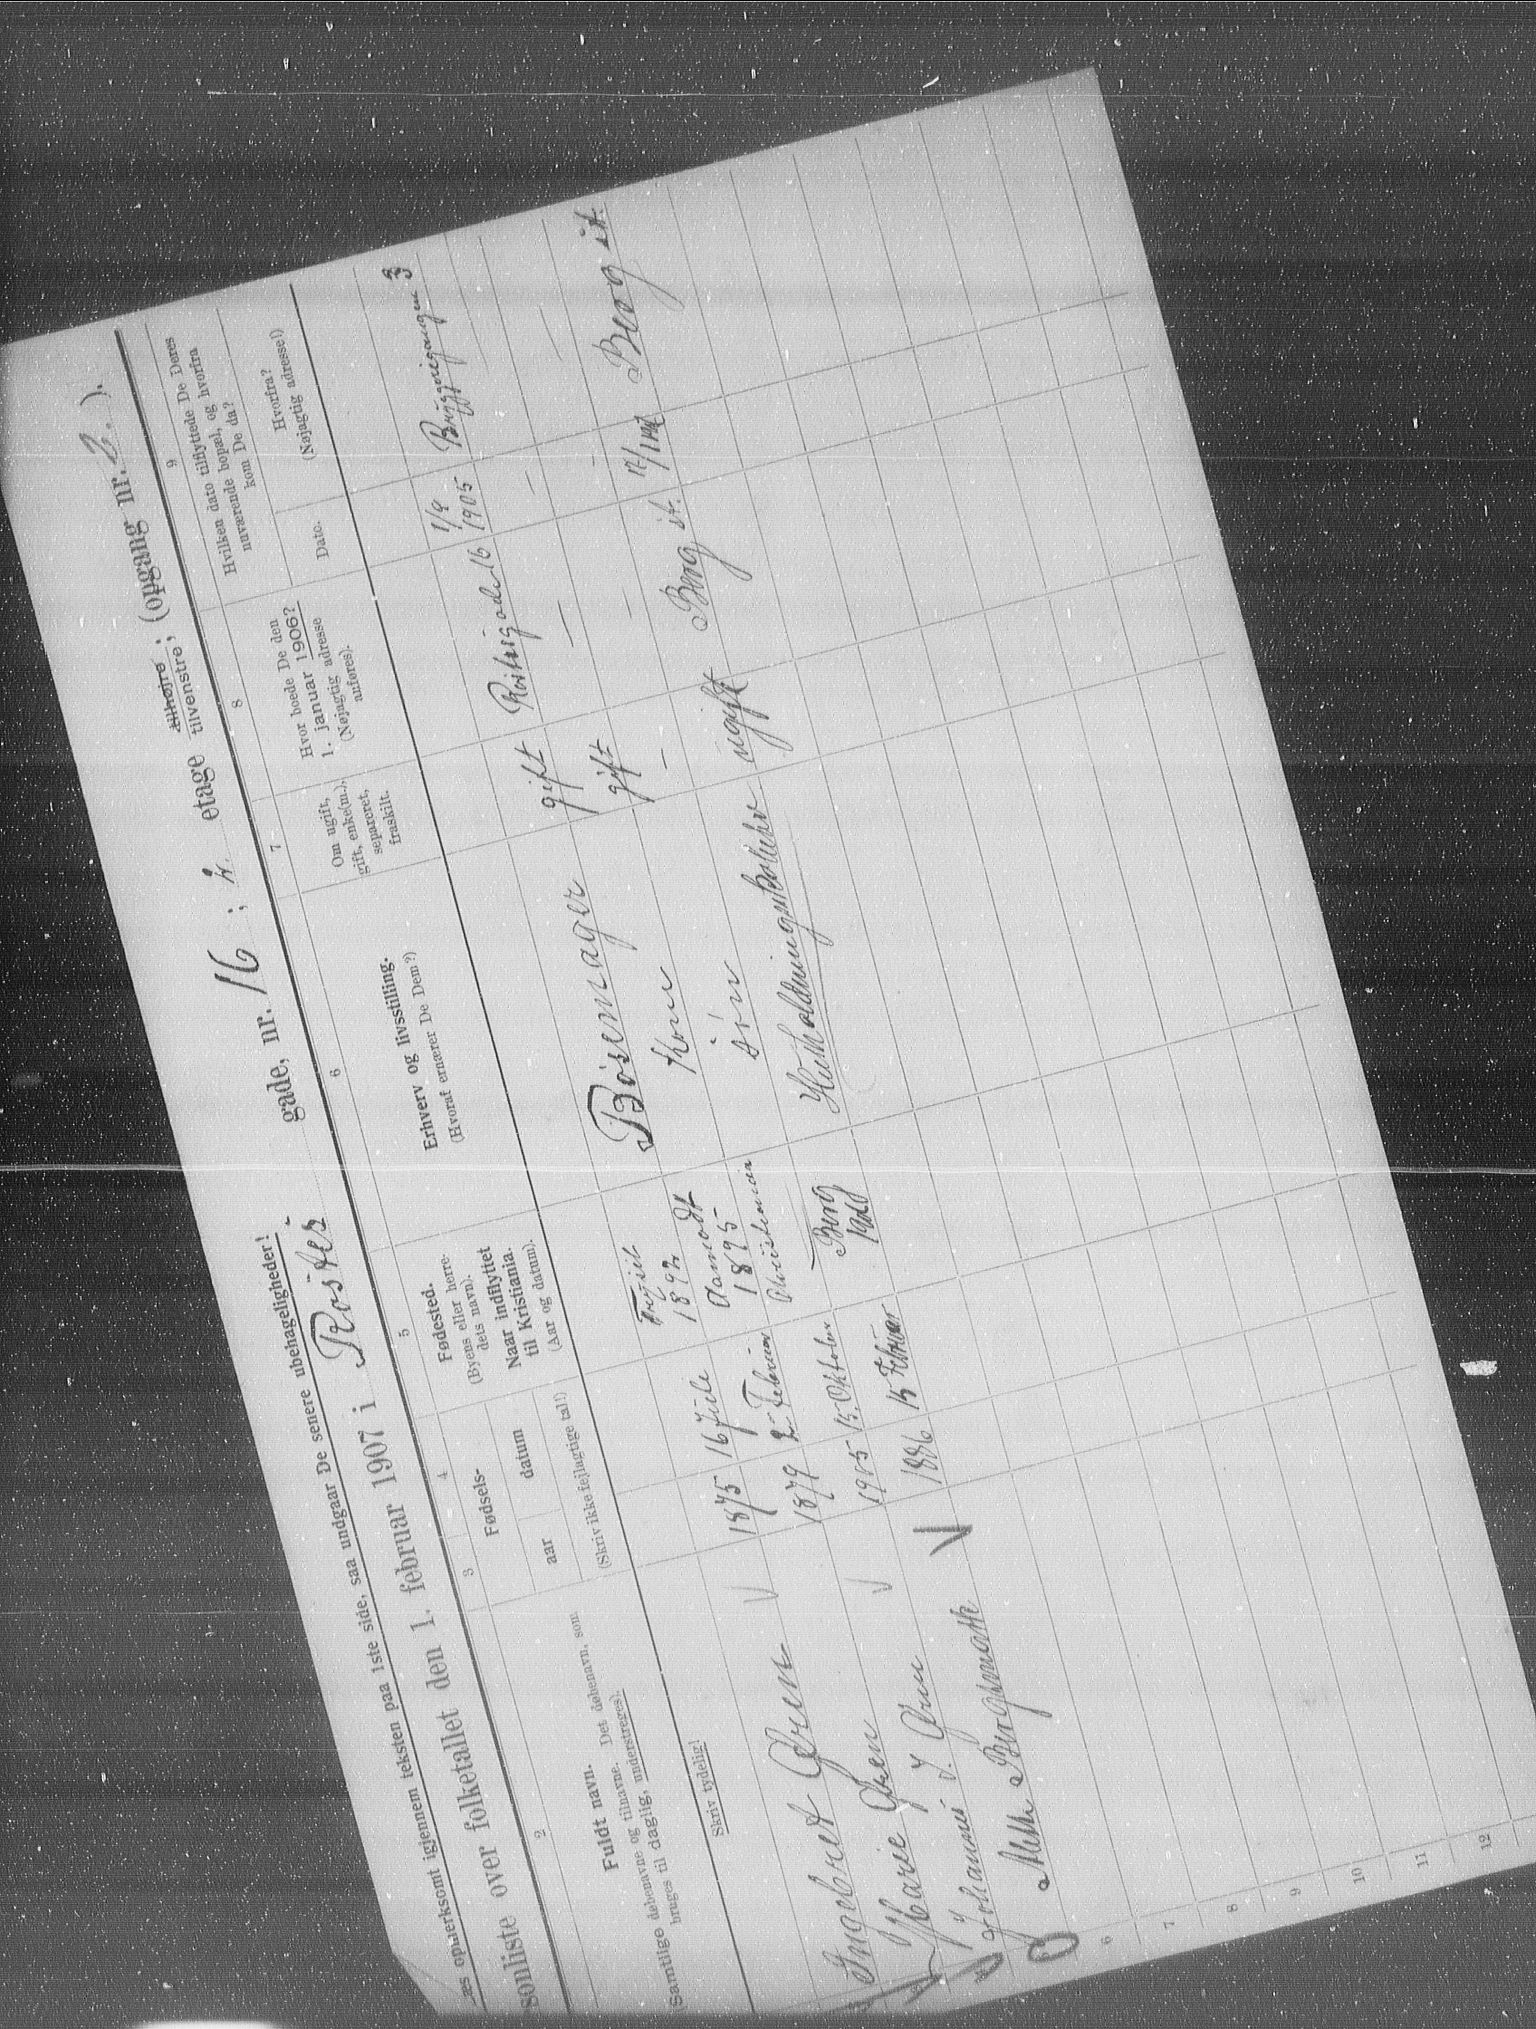 æs opmerksomt igjennem teksten paa 1ste side, saa undgaar De senere ubehageligheder!
sonliste over folketallet den 1. februar 1907 i Rosites gade, nr. 16 ; 2. etage tilhøjre tilvenstre ; (opgang nr. 2. ).
2 3 4 5 6 7 8 9
Fuldt navn.
(Samtlige døbenavne og tilnavne. Det døbenavn, som
bruges til daglig, understreges).
Skriv tydelig!
Fødsels-
aar datum
(Skriv ikke fejlagtige tal!)
Fødested.
(Byens eller herre-
dets navn).
Naar indflyttet
til Kristiania.
(Aar og datum).
Erhverv og livsstilling.
(Hvoraf ernærer De Dem?)
Om ugift,
gift, enke(m.),
separeret,
fraskilt.
Hvor boede De den
1. januar 1906?
(Nøjagtig adresse
anføres).
Hvilken dato tilflyttede De Deres
nuværende bopæl, og hvorfra
kom De da?
Dato.
Hvorfra?
(Nøjagtig adresse!)
Ingebret Gren 1875 16 Juli Trysil 1892 Bósemager gift 16 1/9 1905 3
Marie Gren 1879 2 Februar Aamodt 1895 Kone gift — — —
Johannes I. Gren 1905 15. Oktober Christiania Són — — — —
Berg st. 1886 15 Februar Berg ugift Berg st.
6
7
8
9
10
11
12